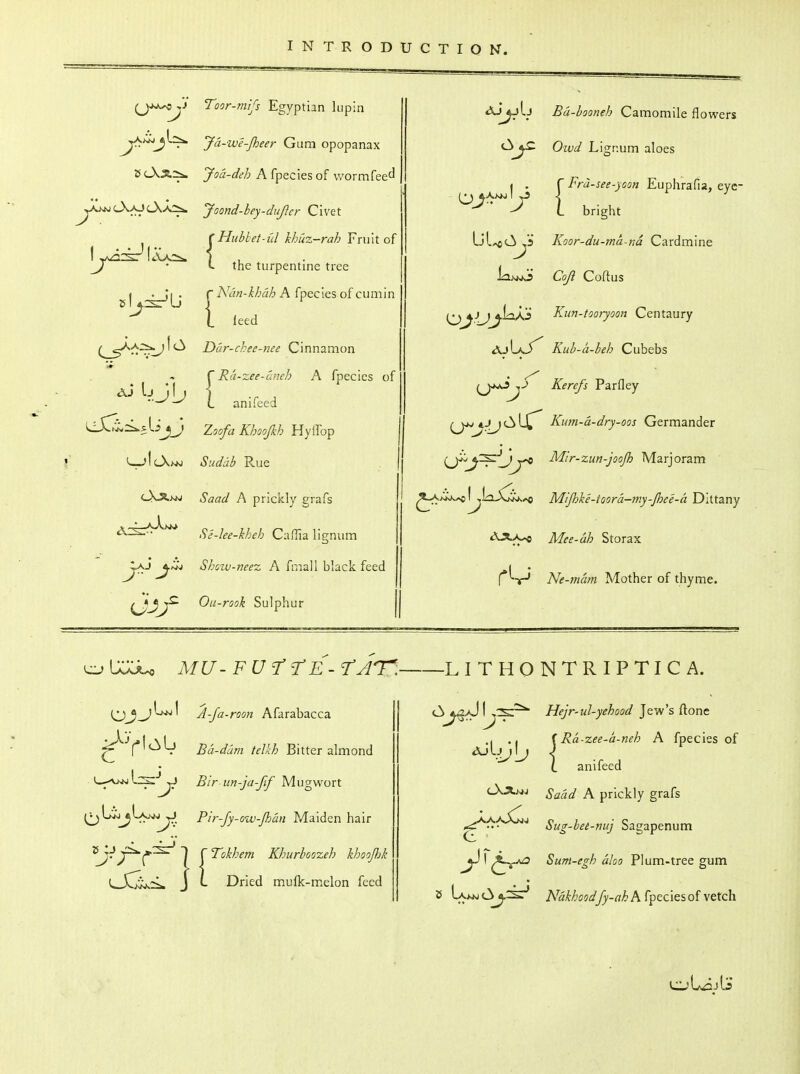 INTRODUCTION.
ترمس Toor-mifs Egyptian lupin
جاوشير Já-wè-fheer Gum opopanax
جعده Joá-deh A fpecies of wormfeed
جند بيدستر Joond-bey-dufter Civet
حبة الخضرا Hubbet-úl khúz-rah Fruit of
the turpentine tree
نانخواه Nán-kháh A fpecies of cumin
feed
دارچيني Dár-chee-nee Cinnamon
رازيانه Rá-zee-áneh A fpecies of
anifeed
زوفا خشك Zoofa Khoofkh Hyffop
سداب Sudáb Rue
سعد Saad A prickly grafs
سليخه Sè-lee-kheh Caffia lignum
شونيز Show-neez A fmall black feed
گوگرد Ou-rook Sulphur
بابونه Bá-booneh Camomile flowers
عود Owd Lignum aloes
فراسيون Frá-see-yoon Euphrafia, eye-
bright
قردمانا Koor-du-má-ná Cardmine
قسط Coft Coftus
قنطوريون Kun-tooryoon Centaury
كبابه Kub-á-beh Cubebs
كرفس Kerefs Parfley
كمادريوس Kum-á-dry-oos Germander
مرزنجوش Mir-zun-joofh Marjoram
مشكطرامشيع Mifhké-toorá-my-fheè-á Dittany
ميعه Mee-áh Storax
نمام Ne-mám Mother of thyme.
مفتتات MU-FUTTE-TÁT.——LITHONTRIPTICA.
اسارون A-fa-roon Afarabacca
بادام تلخ Bá-dám telkh Bitter almond
برنجاسف Bir-un-ja-fif Mugwort
پرسياوشان Pir-fy-ow-fhán Maiden hair
تخم خربزه
خشك
Tokhem Khurboozeh khoofhk
Dried mufk-melon feed
حجر اليهود Hejr-ul-yehood Jew's ftone
رازيانه Rá-zee-á-neh A fpecies of
anifeed
سعد Saád A prickly grafs
سكبينج Sug-bee-nuj Sagapenum
صمغ آلو Sum-egh áloo Plum-tree gum
نخود سياه Nákhoodfy-ah A fpecies of vetch
قابضات